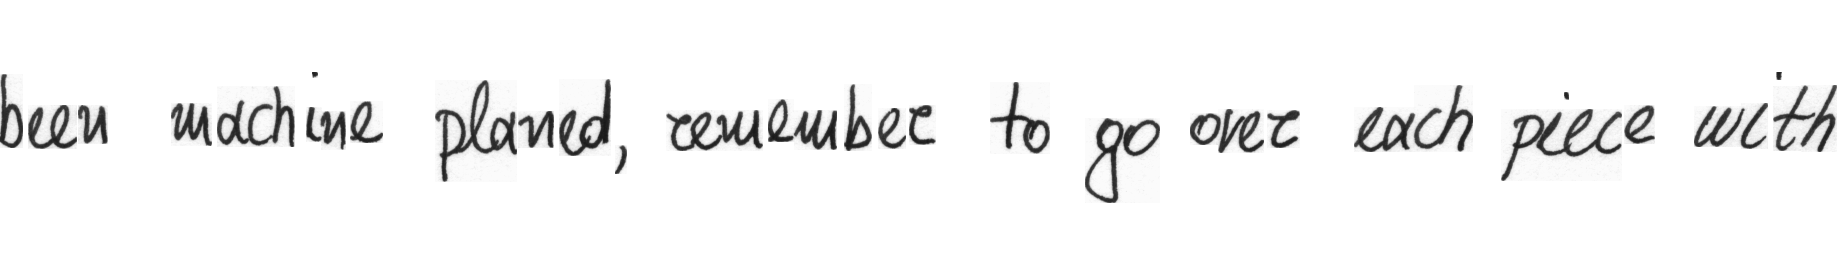 been machine planed, remember to go over each piece with